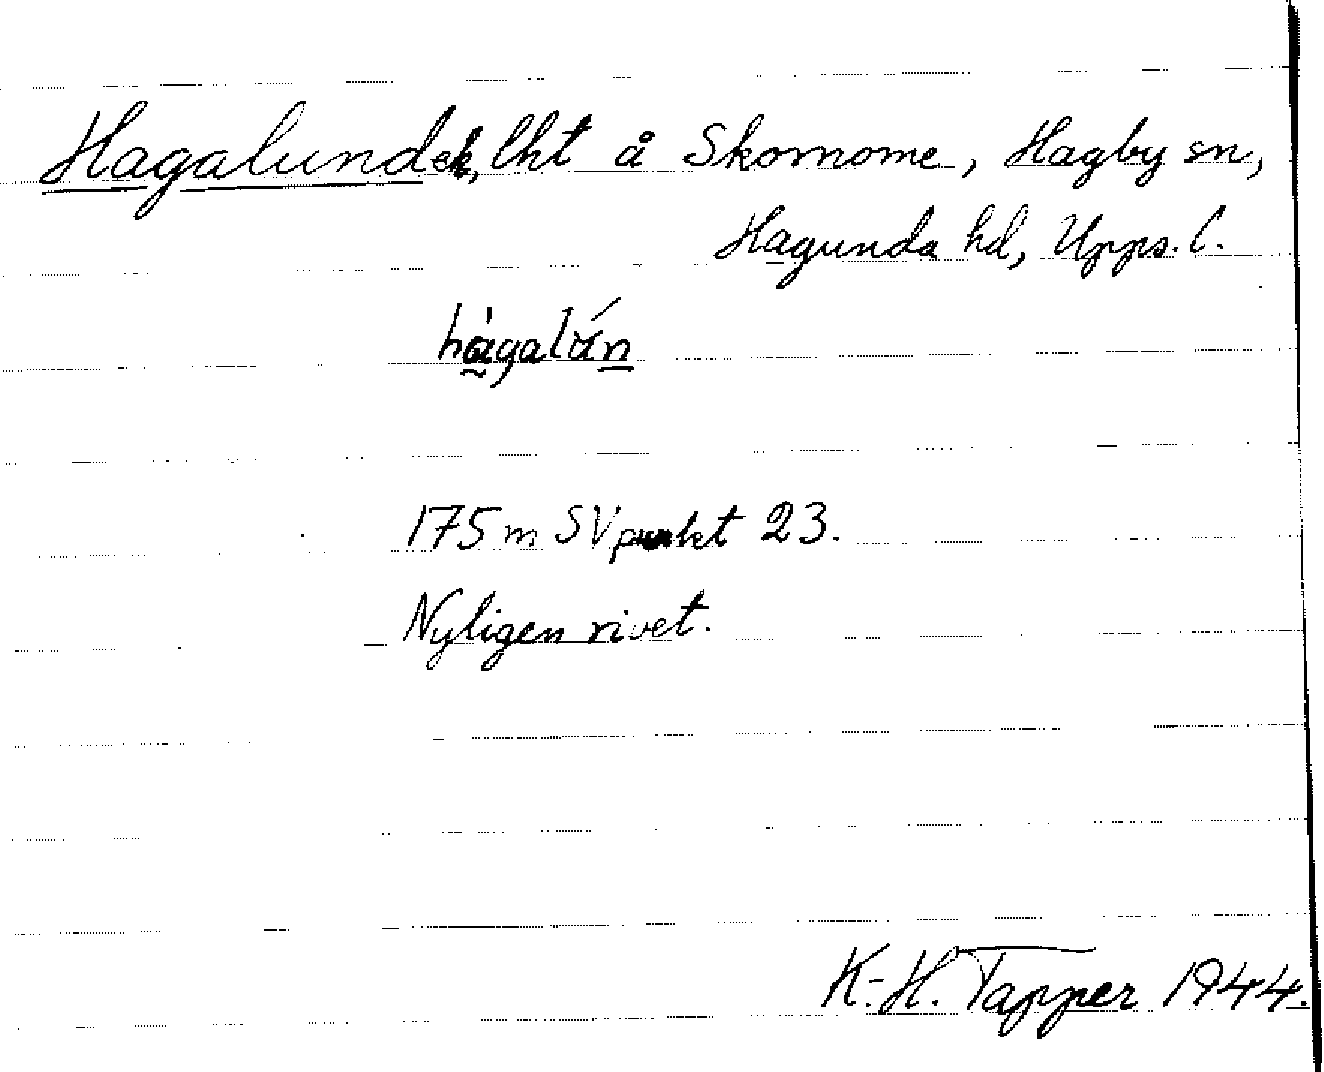 Hagalund ek, lht å Skornome, Hagby sn,
Hagunda hd, Upps. l.
hágalǘn
175 m SV punkt 23.
Nyligen rivet.
K.-H. Tapper 1944.